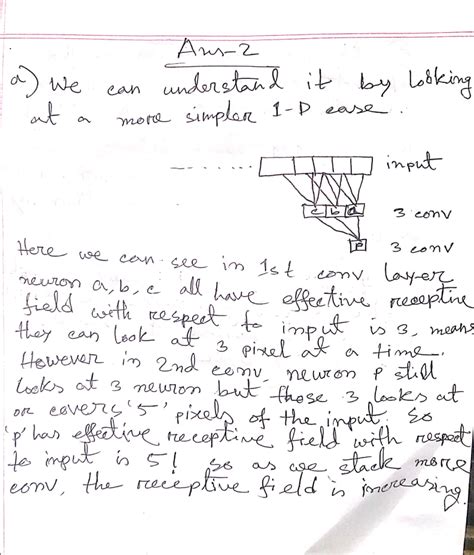 Ans-2
a) We can understand it by looking
at a more simpler 1-D case.
input
c b a
3 conv
p
3 conv
Here we can see in 1st conv layer
neuron a, b, c all have effective receptive
field with respect to input is 3, means
they can look at 3 pixel at a time.
However in 2nd conv, neuron p still
looks at 3 neuron but those 3 looks at
or covers '5' pixels of the input. So
'p' has effective receptive field with respect
to input is 5! So as we stack more
conv, the receptive field is increasing.